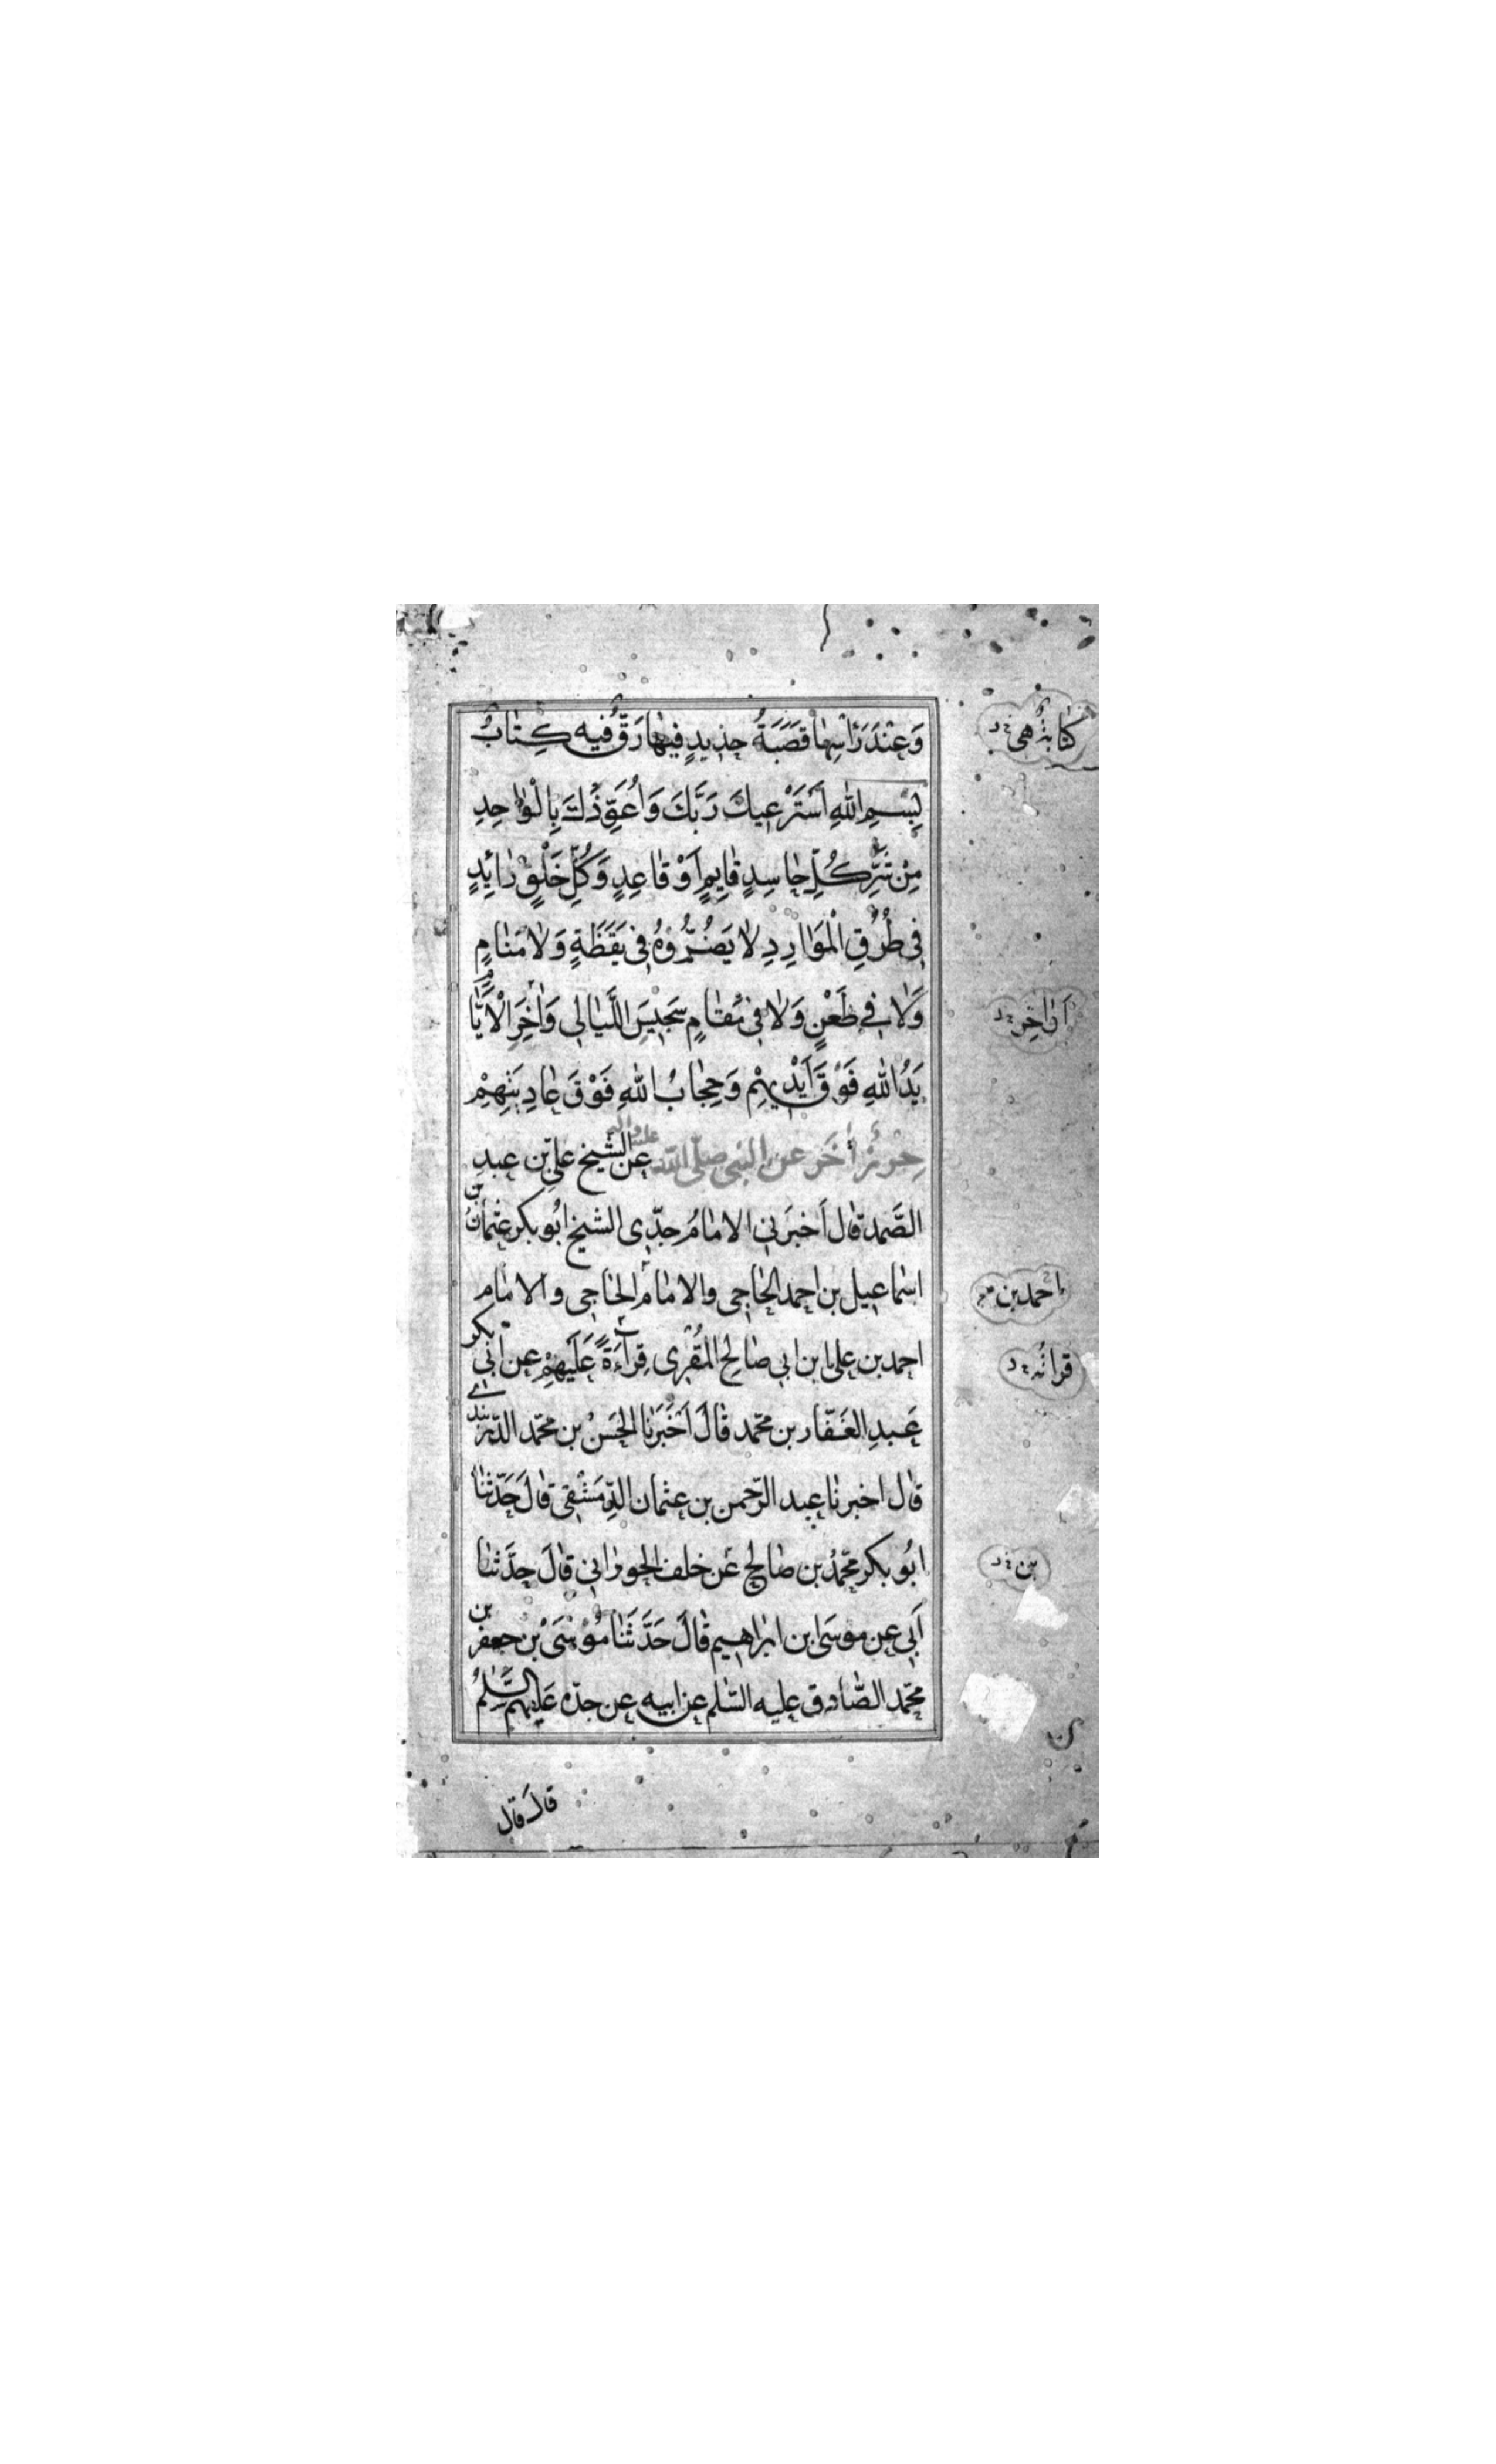 وَعِنْدَ رَأْسِهٰا قَصَبَةُ حَدٖيدٍ فيهٰا رَقٌّ فيه كِتٰابٌ
بِسْــمِ اللّٰهِ اَسْتَرْعيكَ رَبَّكَ وَاُعَوِّذُكَ بِالْوٰاحِدِ
مِنْ شَرِّ كُلِّ حٰاسِدٍ قٰايِمٍ اَوْ قٰاعِدٍ وَكُلِّ خَلْقٍ رٰائِدٍ
فى طُرُقِ الْمَوٰارِدِ لاٰ يَضُرُّوهُ فى يَقَظَةٍ وَلاٰ مَنٰامٍ
وَلاٰ فى ظَعْنٍ وَلاٰ فى مُقٰامٍ سَجيسَ اللَّيٰالى وَاٰخِرَ الْاَيّٰامِ
يَدُ اللّٰهِ فَوْقَ اَيْديهِمْ وَحِجٰابُ اللّٰهِ فَوْقَ عٰادِيَتِهِمْ
حِرْزٌ اٰخَر عن النبى صلّى اللّه عليه واله عن الشيخ علىّ بن عبد
الصَّمد قٰال اَخبرَنى الامٰامُ جدّى الشيخ ابُو بكر عثمٰانُ بن
اسمٰاعيل بن احمد الحٰاجى والامٰامُ الحٰاجى والامٰام
احمد بن على ابن ابى صٰالح المُقْرى قِرٰاءَةً عَلَيهِمْ عن اَبى بكر
عَـبدِ الغَـفّار بن محمّد قٰالَ اَخْبَرَنٰا الحَسَنُ بن محمّد الدّربندے
قٰال اخبرنٰا عبد الرّحمن بن عثمان الدِّمَشْقى قٰالَ حَدّثنٰا
ابُو بكر محمّدُ بن صٰالح عَن خلف الحورٰانى قٰالَ حدَّثنٰا
اَبى عن موسَى ابن ابرٰاهيم قٰالَ حَدَّثَنٰا مُوسَى بْنُ جعفر بن
محمّد الصّٰادق عليه السّلم عن ابيه عن جدّه عَليهم السَّلٰمُ
كتابته هى خ د
اَوٰاخِر خ د
احمد بن
قرانه خ د
بن خ د
قالَ قال